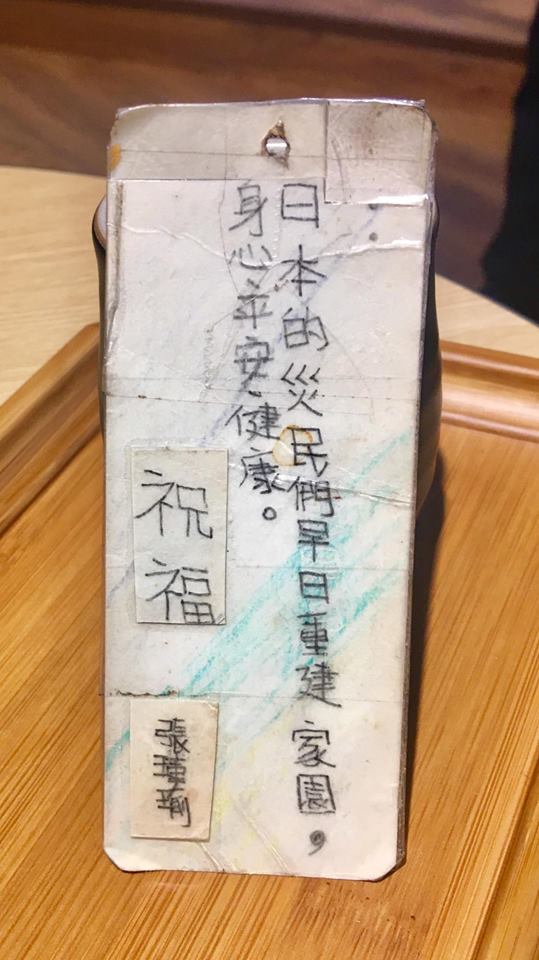 日本的災民們早日重建家園，
身心平安、健康。
祝福
張瑾瑜